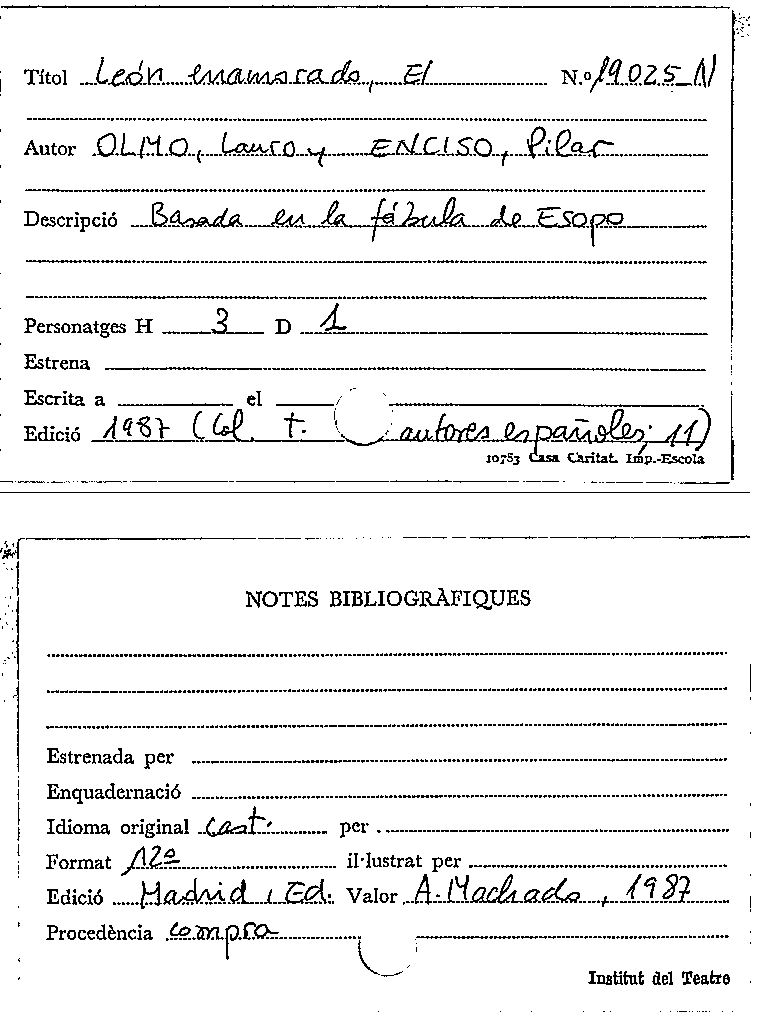 Títol León enamorado, El N.º 19025-N
Autor OLMO, Lauro y ENCISO, Pilar
Descripció Basada en la fábula de Esopo
Personatges H 3 D 1
Estrena
Escrita a el
Edició 1987 (Col. T. autores españoles; 11)
10753 Casa Caritat. Imp.-Escola
NOTES BIBLIOGRÀFIQUES
Estrenada per
Enquadernació
Idioma original Cast. per
Format 12º il·lustrat per
Edició Madrid, Ed. Valor A. Machado, 1987
Procedència compra
Institut del Teatre